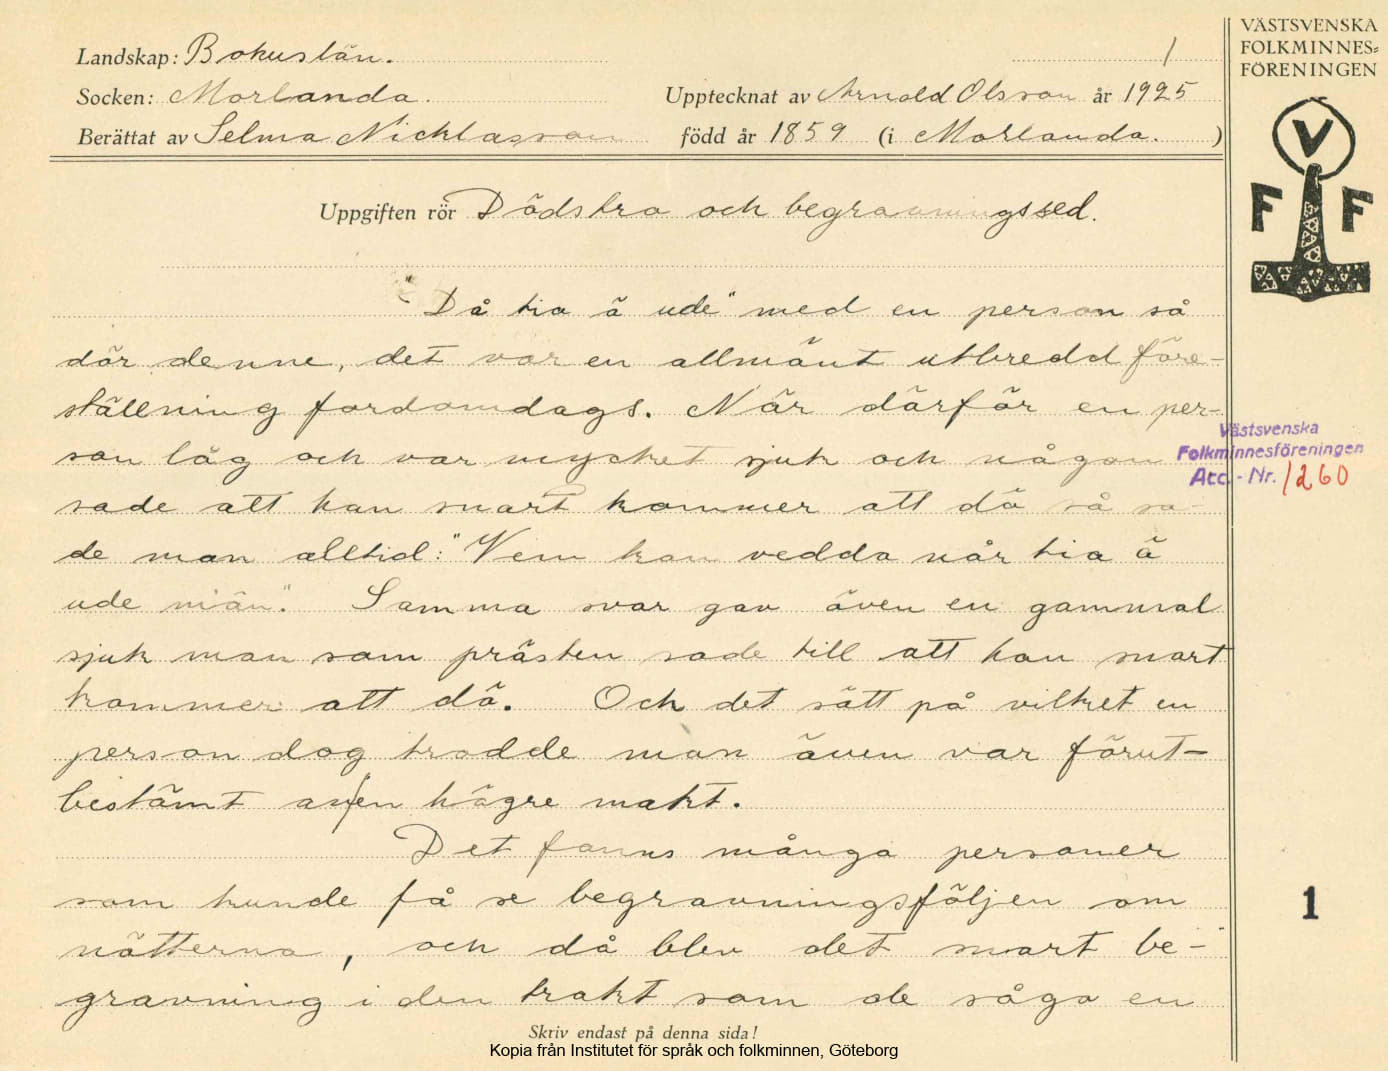 Landskap: Bohuslän.
1
Socken: Morlanda.
Upptecknat av Arnold Olsson år 1925
Berättat av Selma Nicklasson
född år 1859 (i Morlanda.)
Uppgiften rör Dödstro och begravningssed.
"Då tia ä ude" med en person så
dör denne, det var en allmänt utbredd före-
ställning fordomdags. När därför en per-
son låg och var mycket sjuk och någon
sade att han snart kommer att dö så sa-
de man alltid: "Vem kan vedda når tia ä
ude män". Samma svar gav även en gammal
sjuk man som prästen sade till att han snart
kommer att dö. Och det sätt på vilket en
person dog trodde man även var förut-
bestämt av en högre makt.
Det fanns många personer
som kunde få se begravningsföljen om
nätterna, och då blev det snart be-
gravning i den trakt som de sågo en
Skriv endast på denna sida!
Kopia från Institutet för språk och folkminnen, Göteborg
VÄSTSVENSKA
FOLKMINNES=
FÖRENINGEN
V
F F
Västsvenska
Folkminnesföreningen
Acc. - Nr. 1260
1